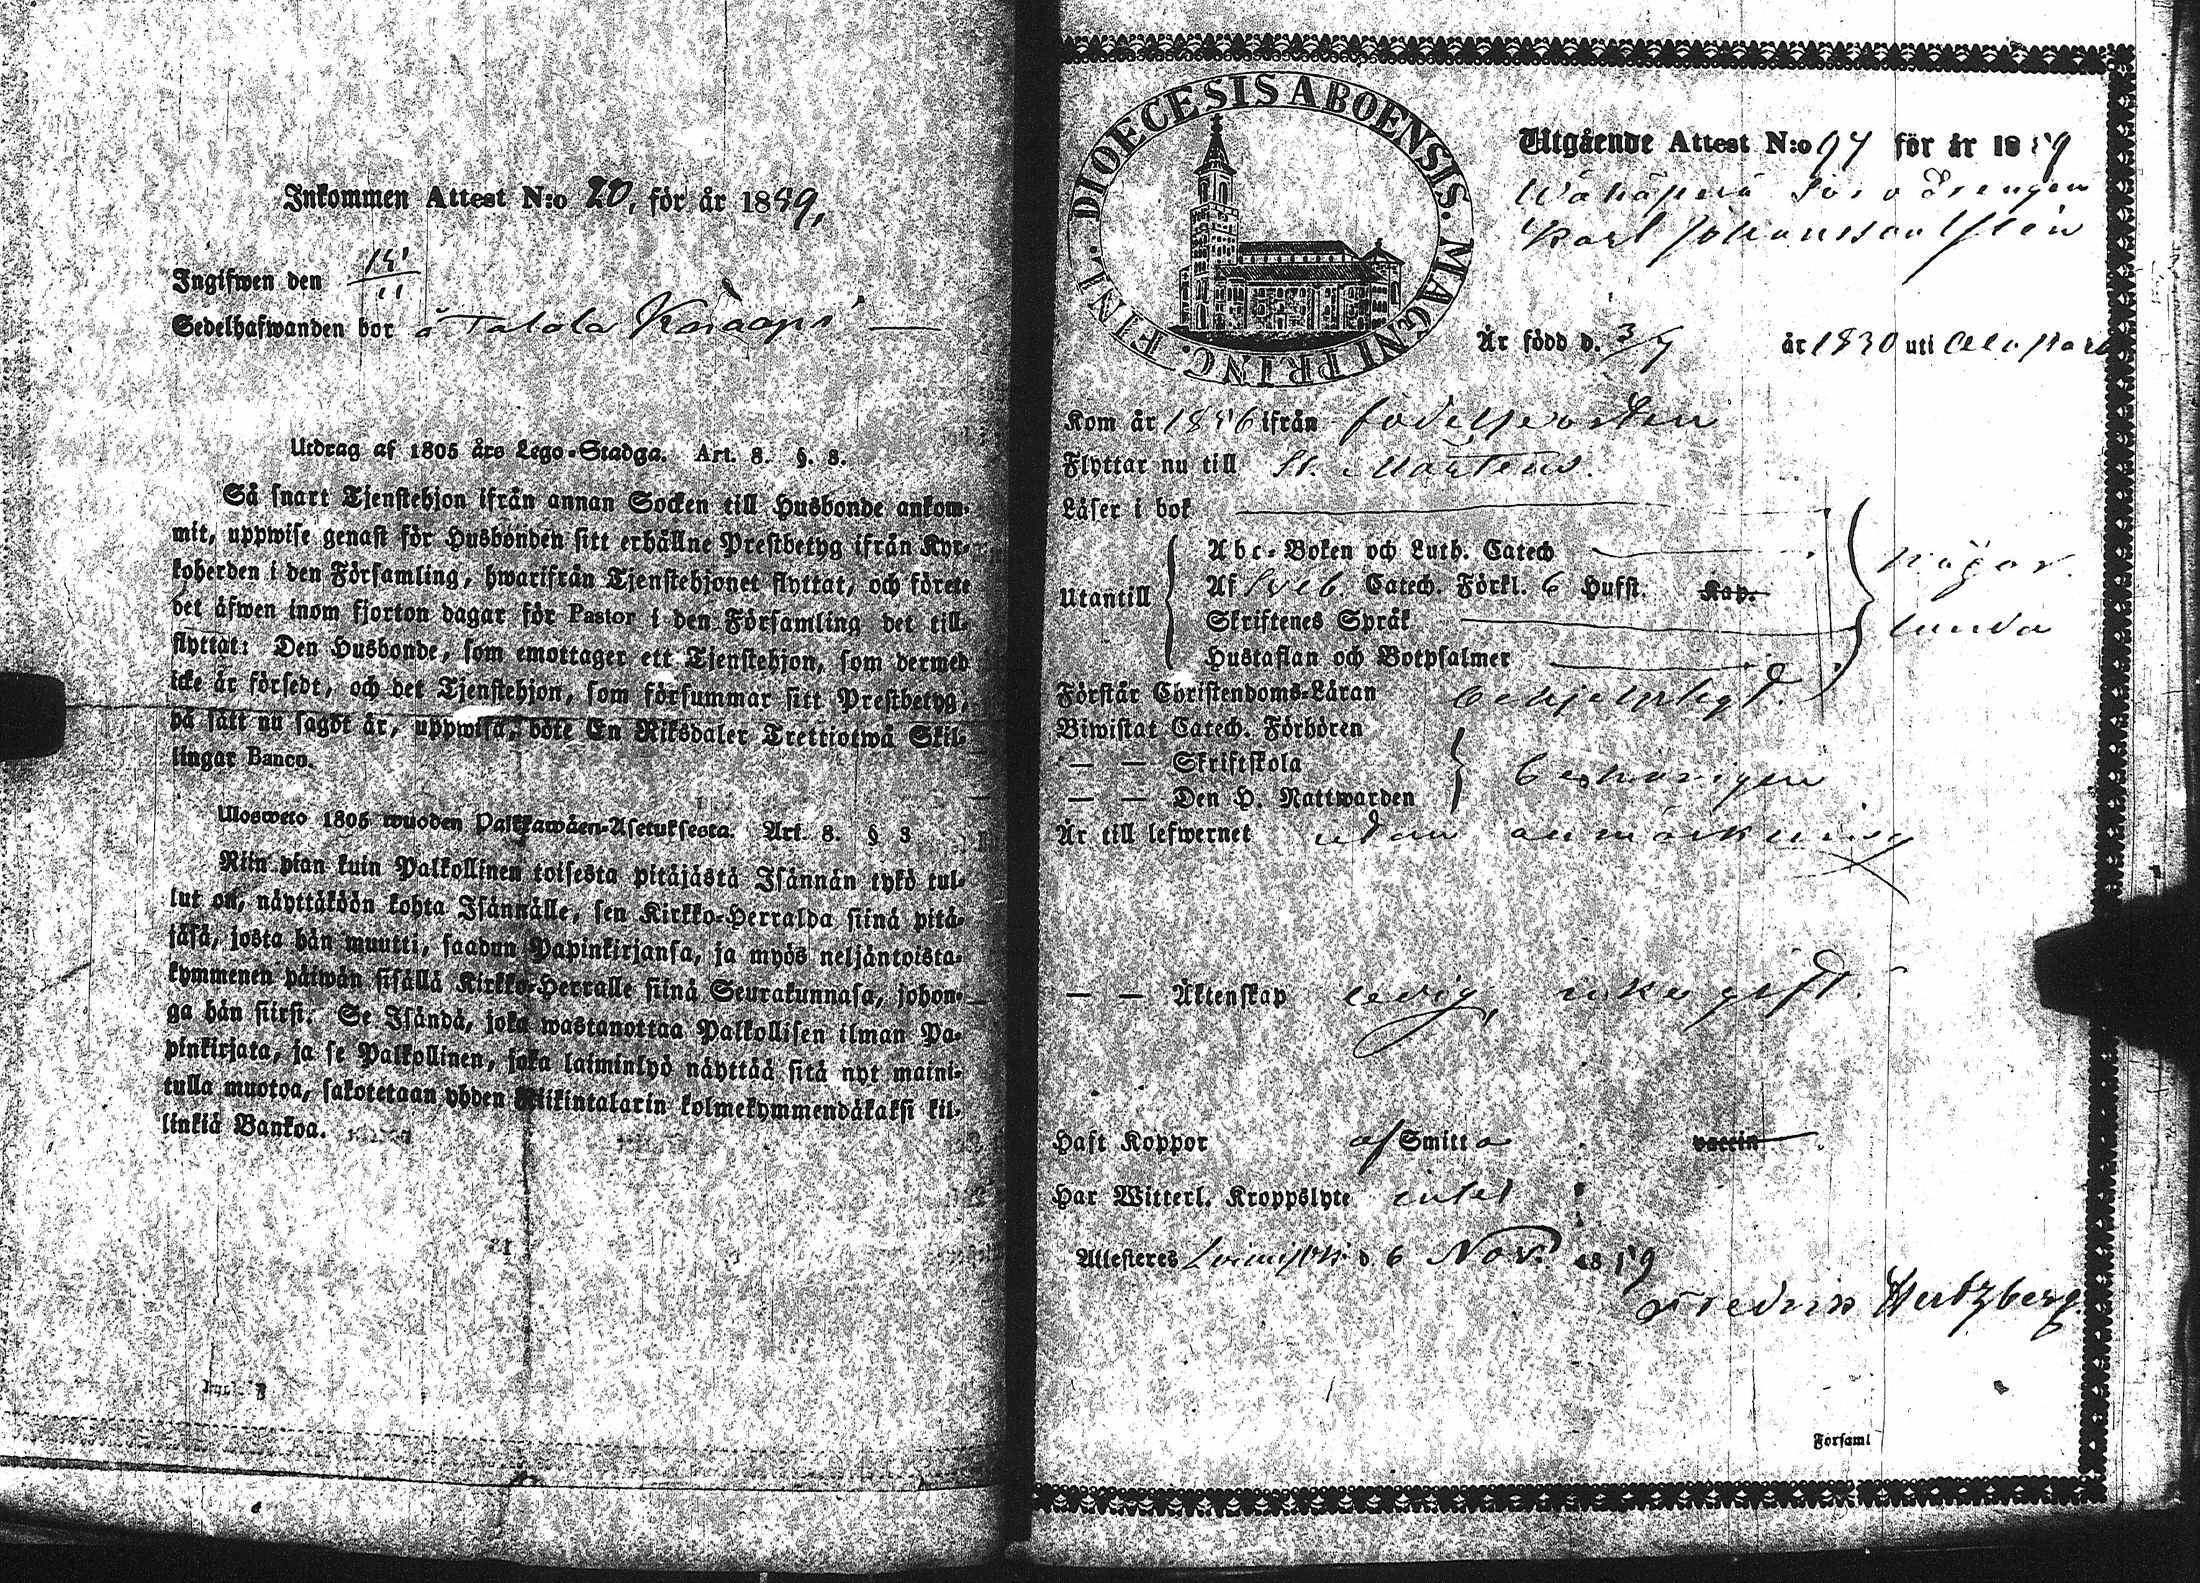 Inkommen Attest N:o 20, för år 1859,
Ingifwen den 15/11
Sedelhafwanden bor å Talola Knaapi
Utdrag af 1805 års Lego-Stadga. Art. 8. §. 8.
Så snart Tjenstehjon ifrån annan Socken till Husbonde ankom-
mit, uppwise genast för Husbonden sitt erhållne Prestbetyg ifrån Kyr-
koherden i den Församling, hwarifrån Tjenstehjonet flyttat, och förete
det äfwen inom fjorton dagar för Pastor i den Församling det till-
flyttat: Den Husbonde, som emottager ett Tjenstehjon, som dermed
icke är försedt, och det Tjenstehjon, som försummar sitt Prestbetyg,
på sätt nu sagdt är, uppwisa, böte En Riksdaler Trettiotwå Skil-
lingar Banco.
Ulosweto 1805 wuoden Palkkawäen-Asetuksesta. Art. 8. § 3
Niin pian kuin Palkollinen toisesta pitäjästä Isännän tykö tul-
lut on, näyttäköön kohta Isännälle, sen Kirkko-Herralda siinä pitä-
jäsä, josta hän muutti, saadun Papinkirjansa, ja myös neljäntoista-
kymmenen päiwän sisällä Kirkko-Herralle siinä Seurakunnasa, johon-
ga hän siirsi. Se Isändä, joka wastanottaa Palkollisen ilman Pa-
pinkirjata, ja se Palkollinen, joka laiminlyö näyttää sitä nyt maini-
tulla muotoa, sakotetaan yhden Riikintalarin kolmekymmendäkaksi kil-
linkiä Bankoa.
DIOECESIS ABOENSIS. MAGNI PRINC. FINL.
Utgående Attest N:o 97 för år 1859
Drengen
Karl Johansson
Är född d. 3/7 år 1830 uti
Kom år 1856 ifrån födelseorten
Flyttar nu till St. Mårtens.
Läser i bok
Utantill
Abc-Boken och Luth. Catech
Af Sveb. Catech. Förkl. 6 Hufst. Kap.
Skriftenes Språk
Hustaflan och Botpsalmer
någor
lunda
Förstår Christendoms-Läran behjelpligt.
Biwistat Catech. Förhören
— — Skriftskola
— — Den H. Nattwarden
behörigen
Är till lefwernet utan anmärkning
— — Äktenskap ledig, icke gift.
Haft Koppor af Smitta vaccin
Har Witterl. Kroppslyte intet
Attesteres Loimijoki d. 6 Nov. 1859
Fredrik Hertzberg.
Forsaml